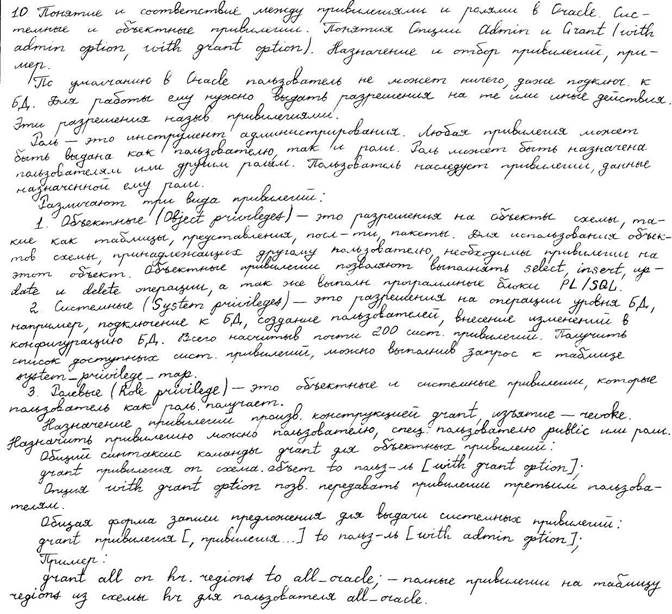 10 Понятие и соответствие между привилегиями и ролями в Oracle. Сис-
темные и объектные привилегии. Понятия Опции Admin и Grant (with
admin option, with grant option). Назначение и отбор привилегий, при-
мер.
По умолчанию в Oracle пользователь не может ничего, даже подключ. к
БД. Для работы ему нужно выдать разрешения на те или иные действия.
Эти разрешения назыв. привилегиями.
Роль — это инструмент администрирования. Любая привилегия может
быть выдана как пользователю, так и роли. Роль может быть назначена
пользователям или другим ролям. Пользователь наследует привилегии, данные
назначенной ему роли.
Различают три вида привилегий:
1. Объектные (Object privileges) — это разрешения на объекты схемы, та-
кие как таблицы, представления, посл-ти, пакеты. Для использования объек-
тов схемы, принадлежащих другому пользователю, необходимы привилегии на
этот объект. Объектные привилегии позволяют выполнять select, insert, up-
date и delete операции, а так же выполн программные блоки PL/SQL.
2. Системные (System privileges) — это разрешения на операции уровня БД,
например, подключение к БД, создание пользователей, внесение изменений в
конфигурацию БД. Всего насчитыв почти 200 сист. привилегий. Получить
список доступных сист. привилегий, можно выполнив запрос к таблице
system_privilege_map.
3. Ролевые (Role privilege) — это объектные и системные привилегии, которые
пользователь как роль получает.
Назначение привилегий произв. конструкцией grant, изъятие — revoke.
Назначить привилегию можно пользователю, спец. пользователю public или роли.
Общий синтаксис команды grant для объектных привилегий:
grant привилегия on схема.объект to польз-ль [with grant option];
Опция with grant option позв. передавать привилегии третьим пользова-
телям.
Общая форма записи предложения для выдачи системных привилегий:
grant привилегия [, привилегия...] to польз-ль [with admin option];
Пример:
grant all on hr.regions to all_oracle; — полные привилегии на таблицу
regions из схемы hr для пользователя all_oracle.